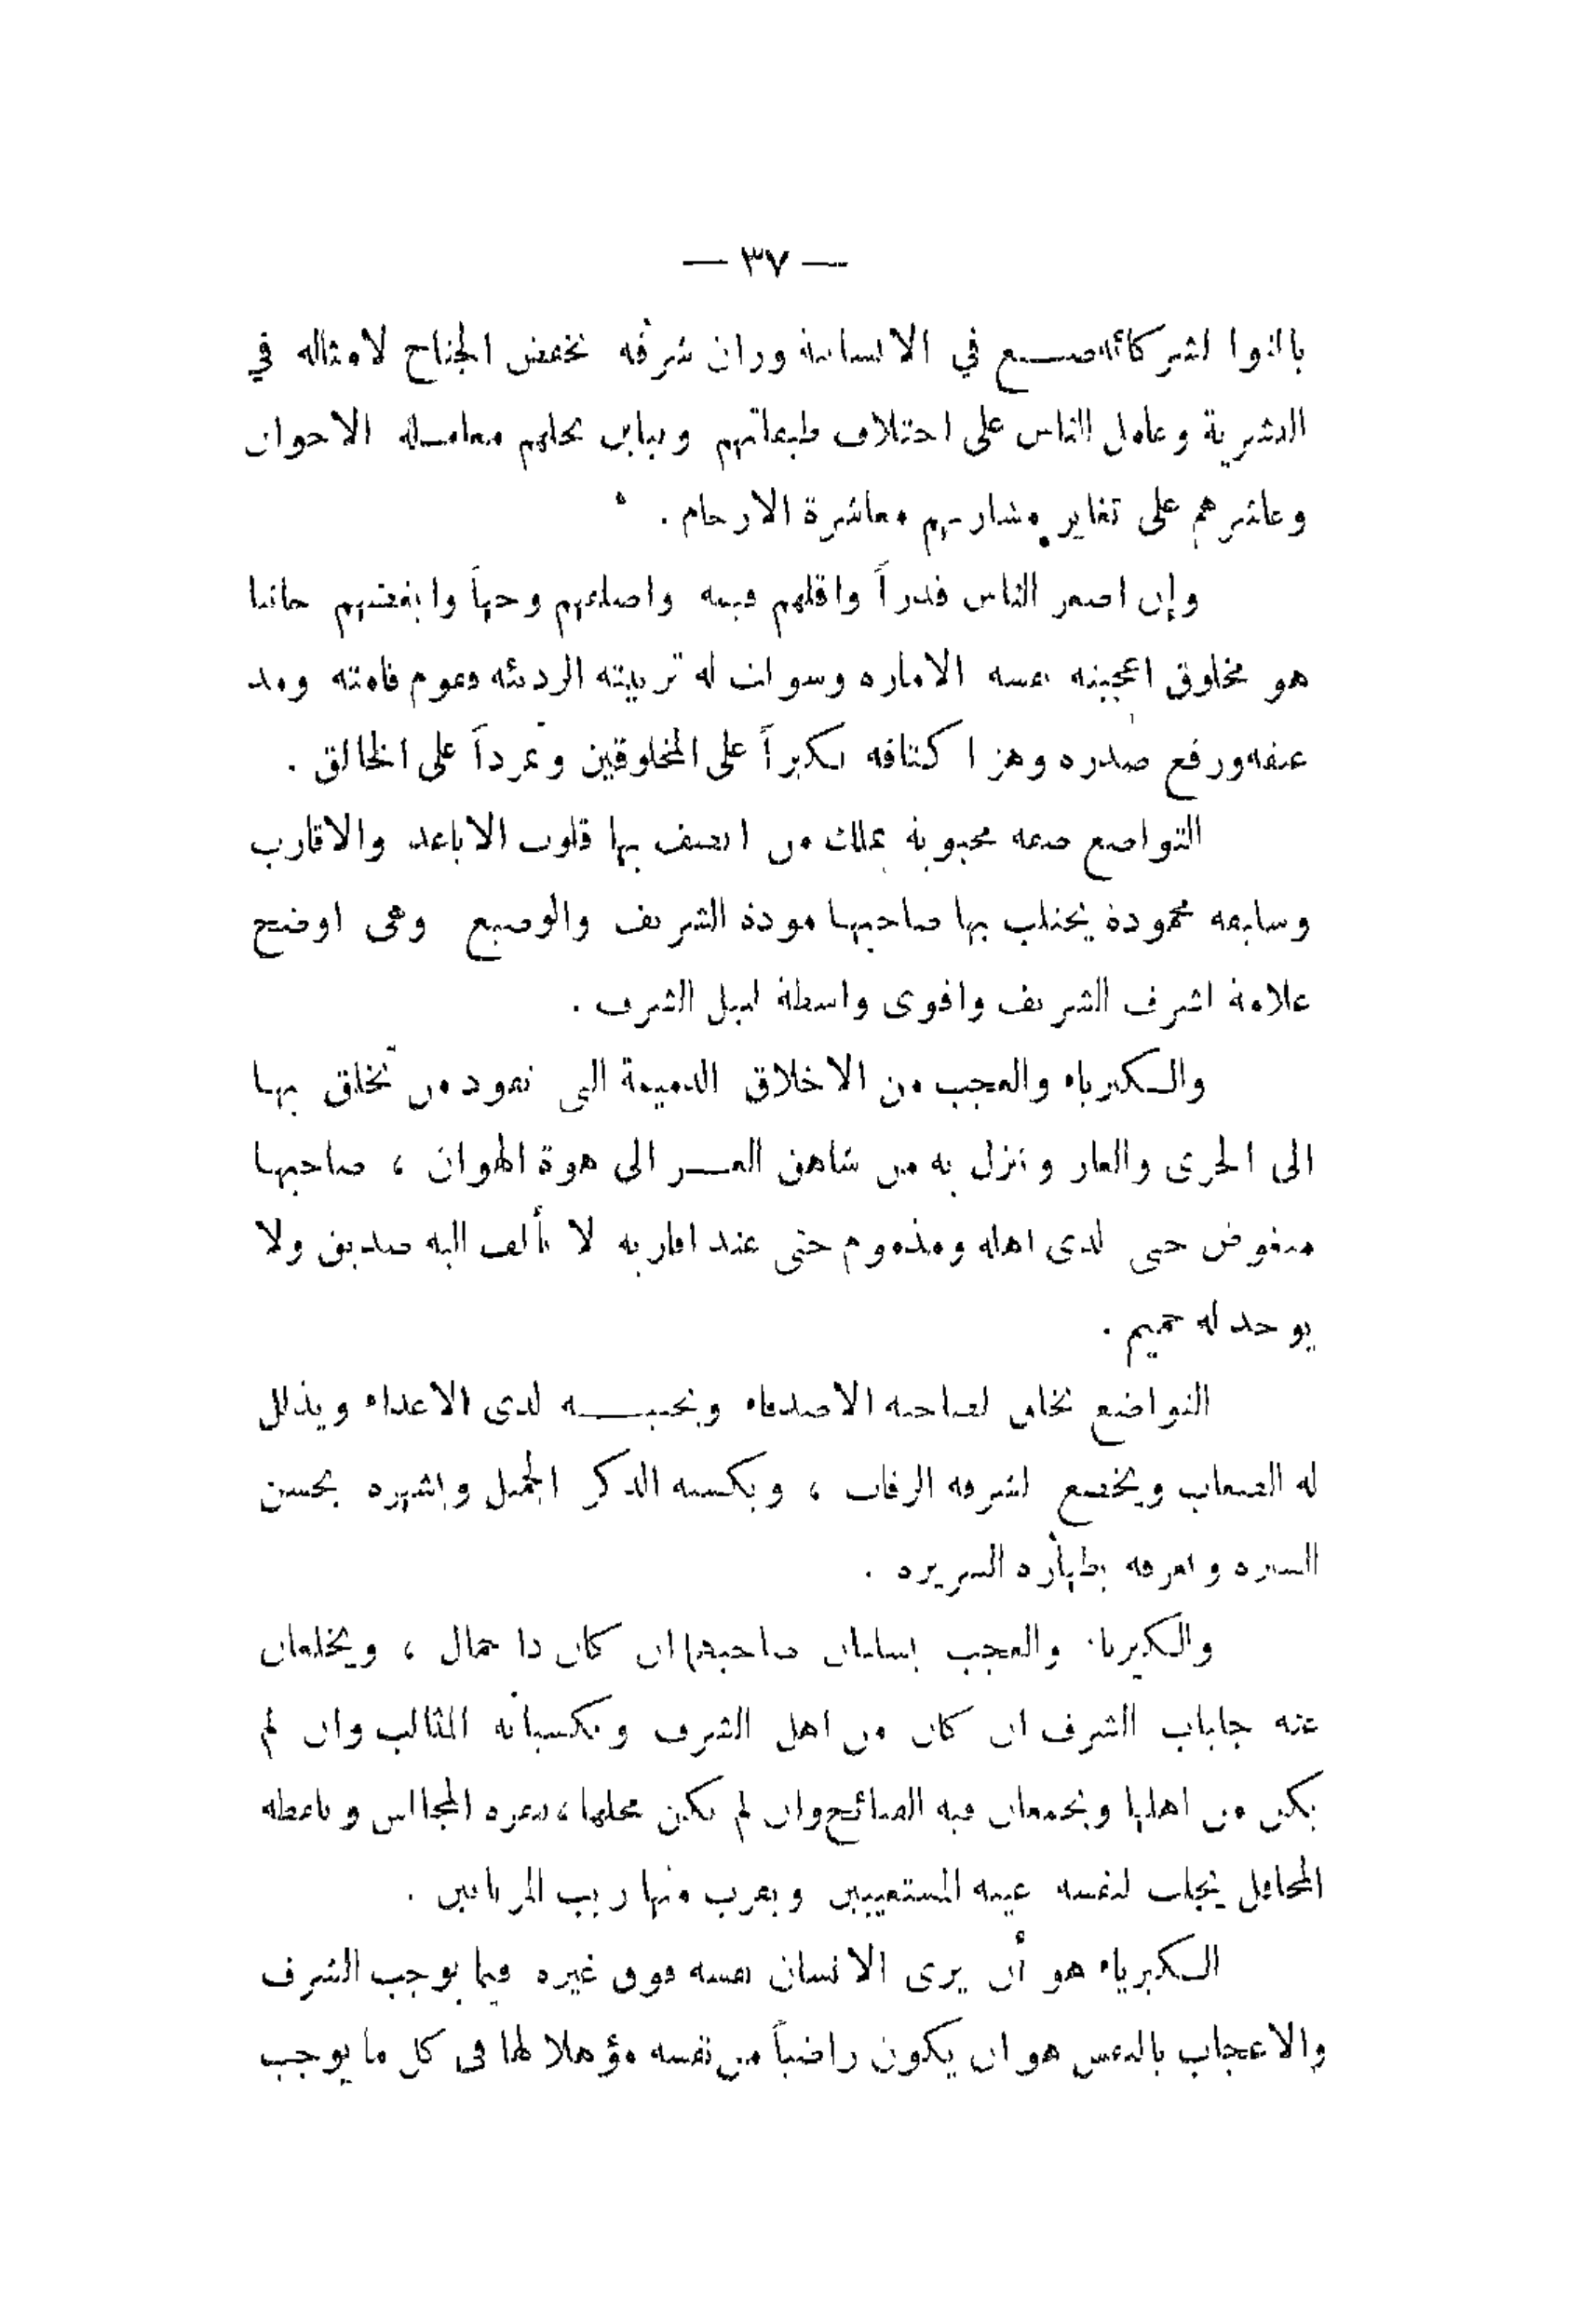 — ٣٧ —
بالتواضع لشركائه في الانسانية وزان شرفه بخفض الجناح لامثاله في
البشرية وعامل الناس على اختلاف طبقاتهم وتباين نحلهم معاملة الاخوان
وعاشرهم على تغاير مشاربهم معاشرة الارحام .
وإن اصغر الناس قدراً واقلهم قيمة واصلفهم وجهاً وابغضهم جانبا
هو مخلوق اعجبته نفسه الامارة وسولت له تربيته الرديئة فقوم قامته ومد
عنقه ورفع صدره وهز اكتافه تكبراً على المخلوقين وتمرداً على الخالق .
التواضع صفة محبوبة يملك من اتصف بها قلوب الاباعد والاقارب
وسابغة محمودة يجتلب بها صاحبها مودة الشريف والوضيع وهي اوضح
علامة لشرف الشريف واقوى واسطة لنيل الشرف .
والكبرياء والعجب من الاخلاق الذميمة التي تقود من تخلق بها
الى الخزى والعار وتنزل به من شاهق العز الى هوة الهوان ، صاحبها
مبغوض حتى لدى اهله ومذموم حتى عند اقاربه لا يألف اليه صديق ولا
يوجد له حميم .
التواضع يخلق لصاحبه الاصدقاء ويحببه لدى الاعداء ويذلل
له الصعاب ويخضع لشرفه الرقاب ، ويكسبه الذكر الجميل ويشهره بحسن
السيرة ويعرفه بطهارة السريرة .
والكبرياء والعجب يسلبان صاحبهما ان كان ذا جمال ، ويخلعان
عنه جلباب الشرف ان كان من اهل الشرف ويكسبانه المثالب وان لم
يكن من اهلها ويجمعان فيه القبائح وان لم يكن محلها ، المجالس وتلفظه
المحافل يجلب لنفسه غيبة المستغيبين ويقرب منها ريب المرتابين .
الكبرياء هو أن يرى الانسان نفسه فوق غيره فيما يوجب الشرف
والاعجاب بالنفس هو ان يكون راضياً من نفسه مؤهلا لها في كل ما يوجب